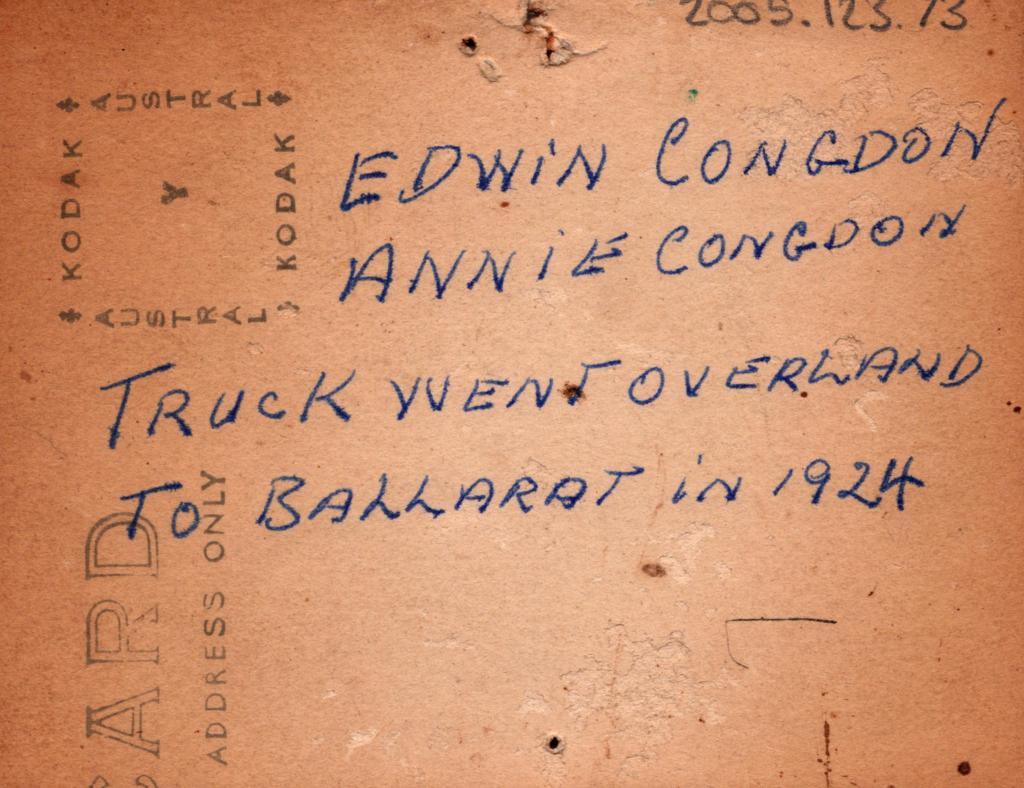 2005.123.13
EDWiN CONGDON
ANNiE CONGDON
TRUCK WENT OVERLAND
To BALLARAT in 1924
AUSTRAL
KODAK
Y
KODAK
AUSTRAL
CARD
ADDRESS ONLY